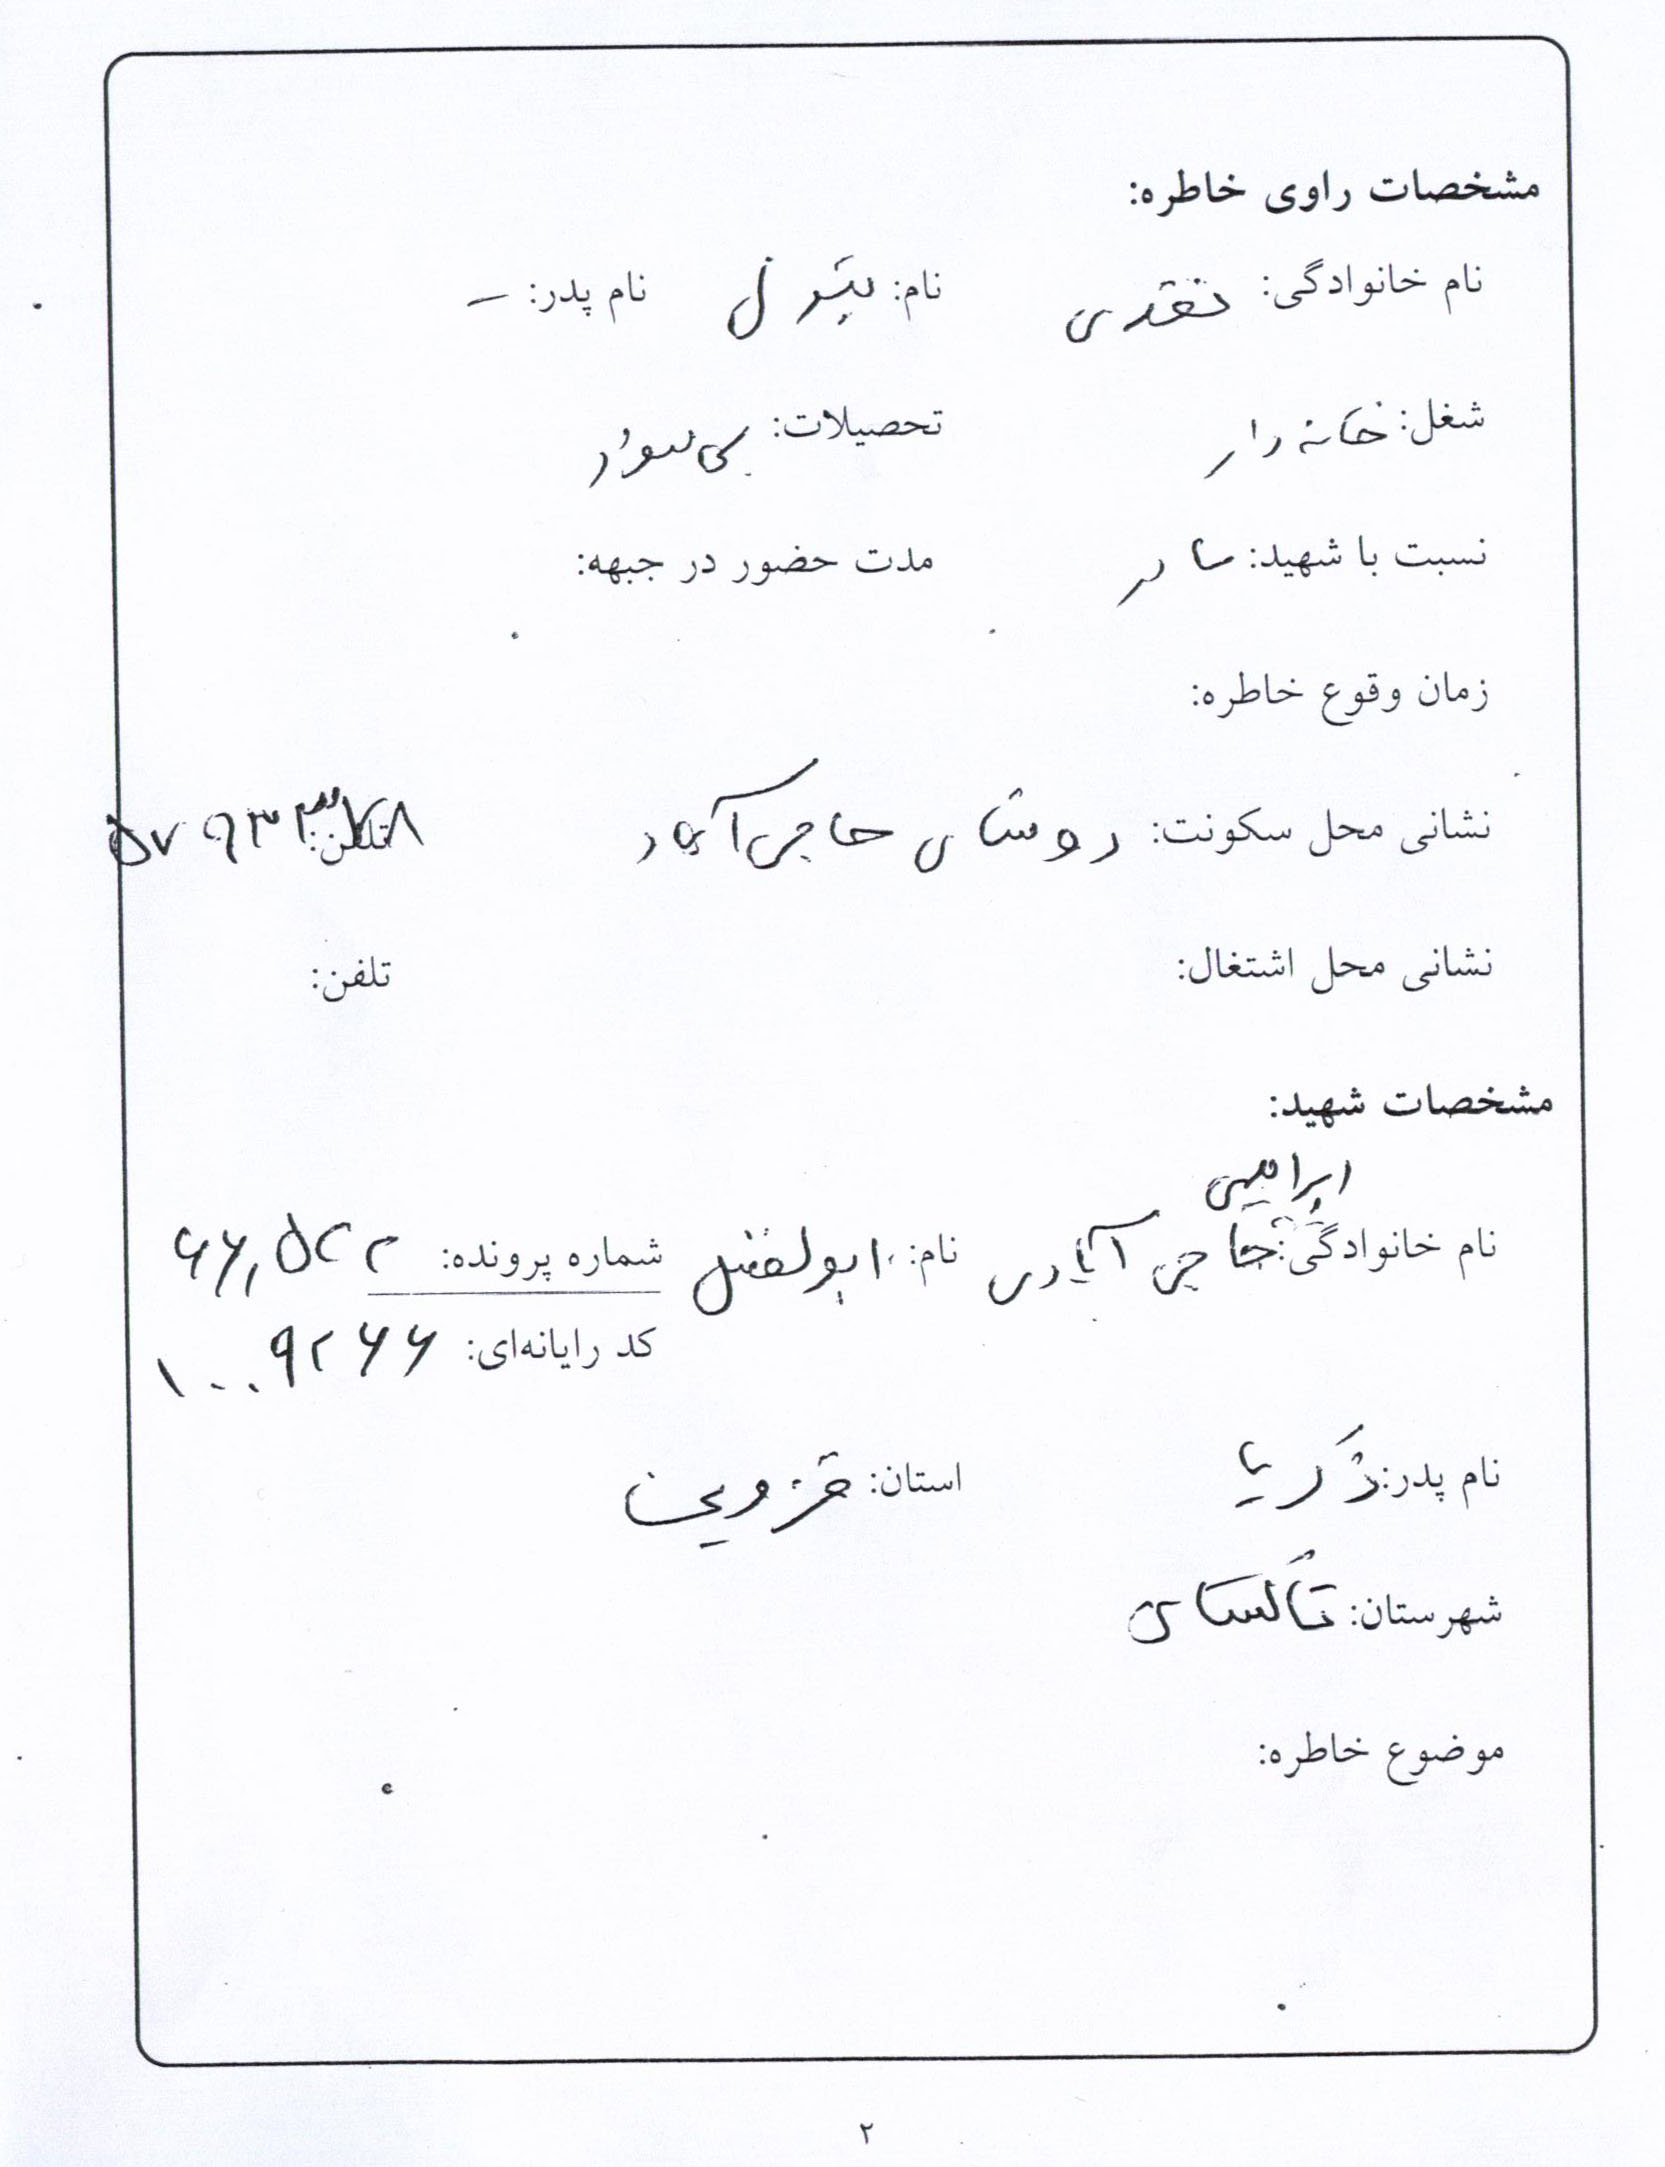 مشخصات راوی خاطره:
نام خانوادگی: نقدی نام: بتول نام پدر: –
شغل: خانه دار تحصیلات: بی سواد
نسبت با شهید: مادر مدت حضور در جبهه:
زمان وقوع خاطره:
نشانی محل سکونت: روستای حاجی آباد تلفن:
نشانی محل اشتغال: تلفن:
مشخصات شهید:
ابراهیمی
نام خانوادگی: حاجی آبادی نام: ابولفضل شماره پرونده:
کد رایانه‌ای: ۱۰۰۹۲۶۶
نام پدر: ذکریا استان: قزوین
شهرستان: تاکستان
موضوع خاطره:
۲